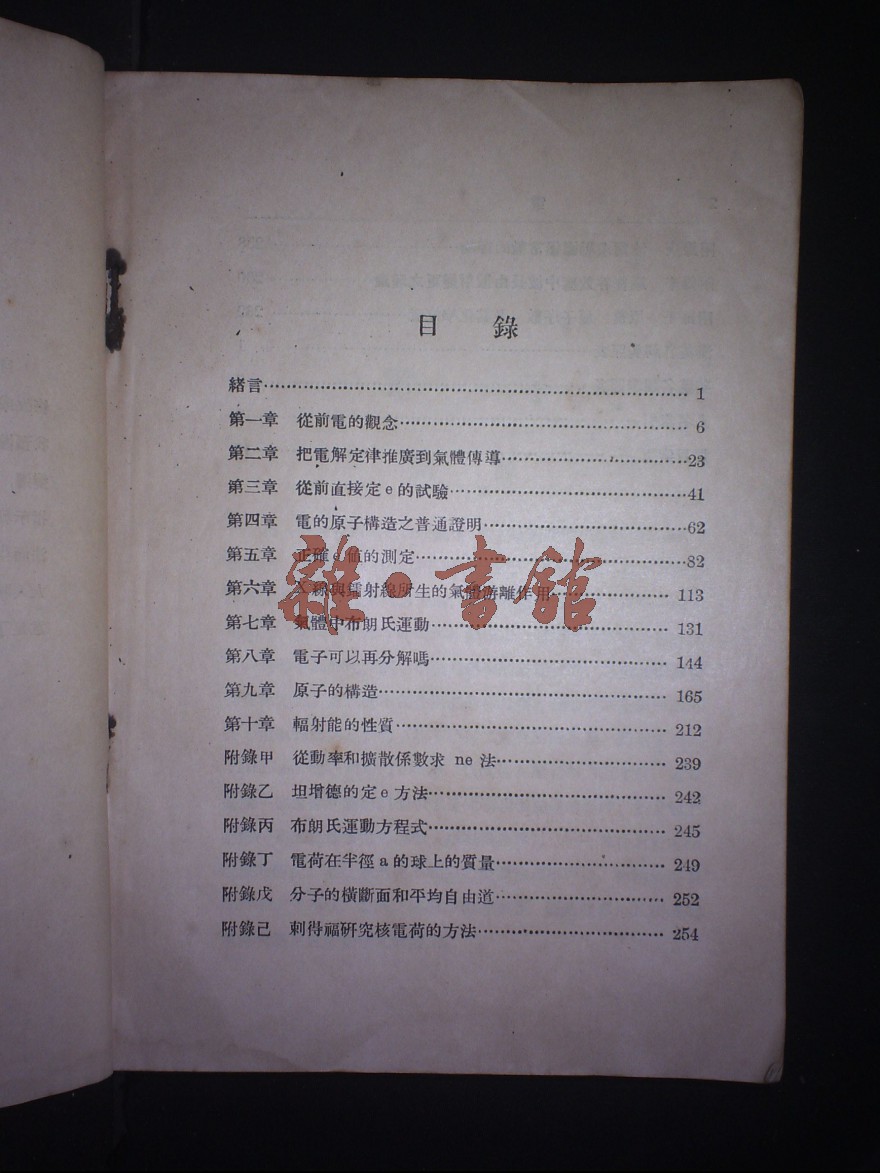 目 錄
緒言 1
第一章 從前電的觀念 6
第二章 把電解定律推廣到氣體傳導 23
第三章 從前直接定e的試驗 41
第四章 電的原子構造之普通證明 62
第五章 正確e値的測定 82
第六章 X線與鐳射線所生的氣體游離作用 113
第七章 氣體中布朗氏運動 131
第八章 電子可以再分解嗎 144
第九章 原子的構造 165
第十章 輻射能的性質 212
附錄甲 從動率和擴散係數求 ne 法 239
附錄乙 坦增德的定e方法 242
附錄丙 布朗氏運動方程式 245
附錄丁 電荷在半徑a的球上的質量 249
附錄戊 分子的橫斷面和平均自由道 252
附錄己 刺得福硏究核電荷的方法 254
雜·書館